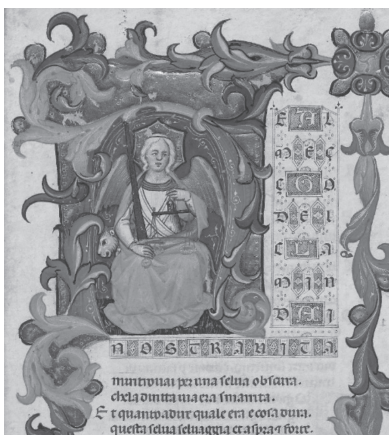 EL
MEÇ
ÇO
DEL
CA
MIN
DI
NOSTRA VITA
miritrouai per una selua obscura.
chela diritta uia era smarrita.
Et quanto adir quale era e cosa dura.
questa selua seluaggia et aspra et forte.